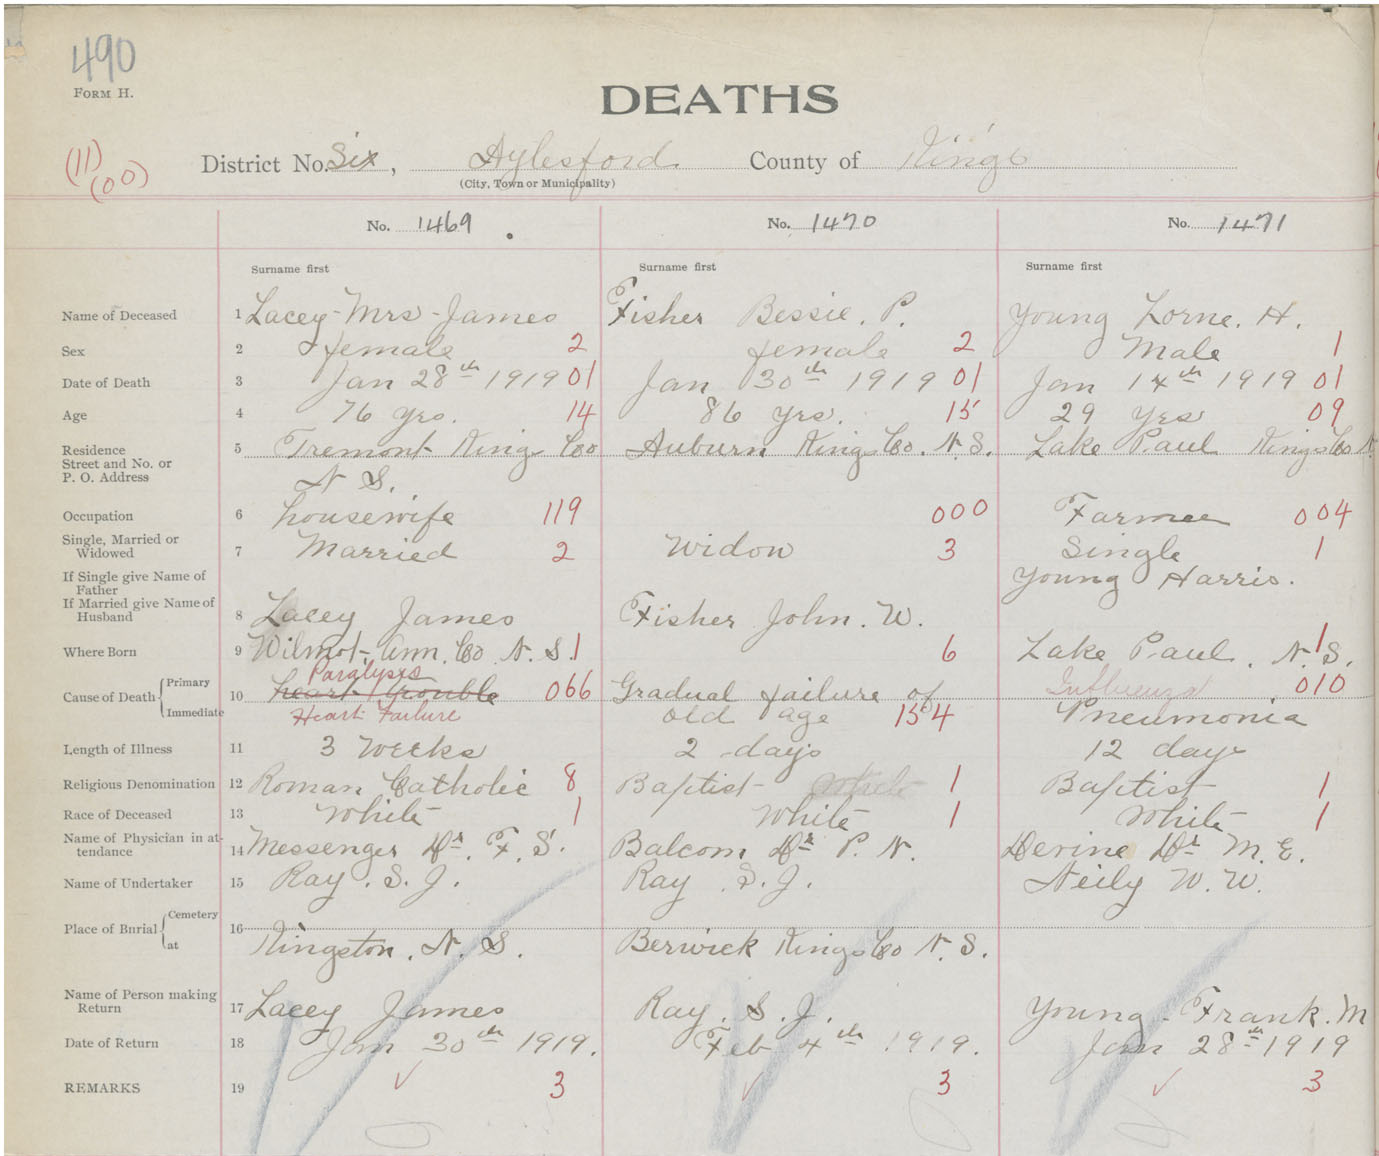 490
FORM H.
DEATHS
(11)
(00)
District No. Six, Aylesford County of Kings
(City, Town or Municipality)
No. 1469. No. 1470 No. 1471
Surname first Surname first Surname first
Name of Deceased 1 Lacey - Mrs - James Fisher Bessie. P. Young Lorne. H.
Sex 2 female 2 female 2 Male 1
Date of Death 3 Jan 28th 1919 01 Jan 30th 1919 01 Jan 14th 1919 01
Age 4 76 yrs. 14 86 yrs. 15 29 yrs 09
Residence
Street and No. or
P. O. Address
5 Tremont Kings Co Auburn Kings Co. N. S. Lake Paul Kings Co N.
N S.
Occupation 6 housewife 119 000 Farmer 004
Single, Married or
Widowed
7 Married 2 Widow 3 Single 1
If Single give Name of
Father
Young Harris.
If Married give Name of
Husband
8 Lacey James Fisher John. W.
Where Born 9 Wilmot, Ann. Co. N. S. 1 6 Lake Paul. N. S. 1
Cause of Death { Primary
Immediate
10 Paralysis
heart trouble 066 Gradual failure of Influenza 010
Heart Failure old age 154 Pneumonia
Length of Illness 11 3 Weeks 2 days 12 days
Religious Denomination 12 Roman Catholic 8 Baptist White 1 Baptist 1
Race of Deceased 13 White 1 White 1 White 1
Name of Physician in at-
tendance
14 Messenger Dr. F. S. Balcom Dr P. N. Devine Dr M. E.
Name of Undertaker 15 Ray. S. J. Ray. S. J. Neily W. W.
Place of Burial { Cemetery
at
16 Kingston. N. S. Berwick Kings Co N. S.
Name of Person making
Return
17 Lacey James Ray. S. J. Young. Frank. M
Date of Return 18 Jan 30th 1919. Feb 4th 1919. Jan 28th 1919
REMARKS 19 ✓ 3 ✓ 3 ✓ 3